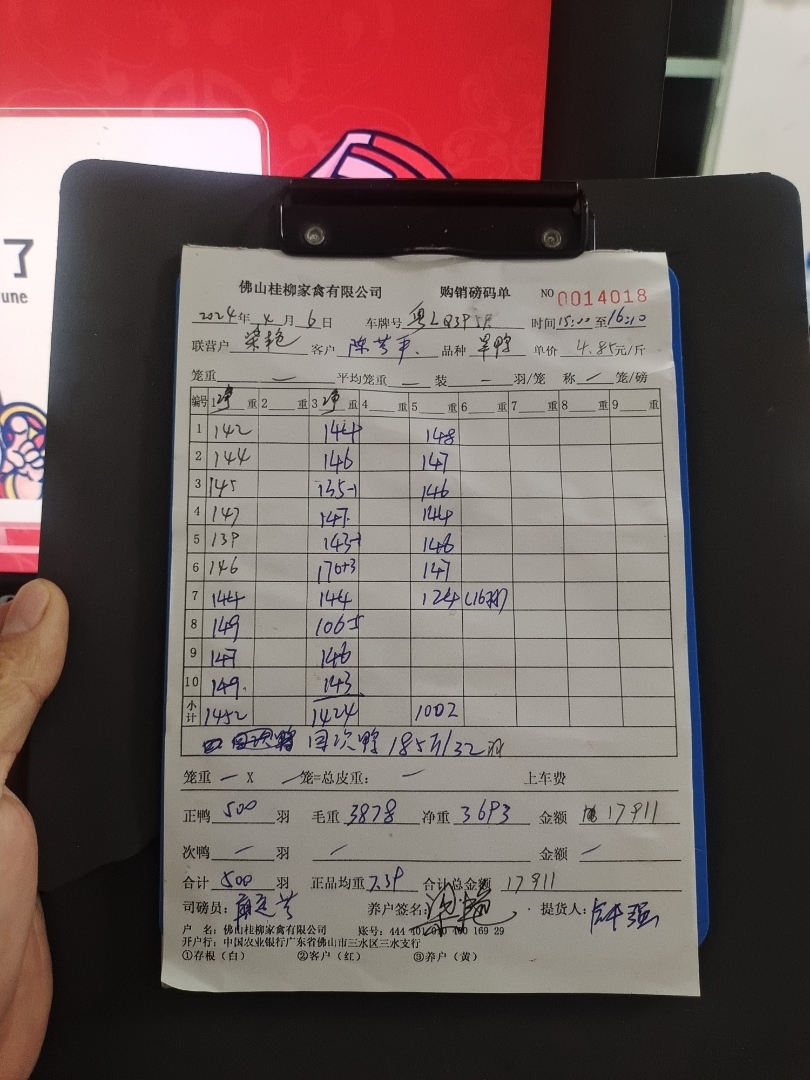 了
une
佛山桂柳家禽有限公司 购销磅码单 NO 0014018
2024年 4月 6日 车牌号 时间15:00至16:10
联营户 梁艳 客户 陈芳平 品种 单价 4.85元/斤
笼重 — 平均笼重 — 装 — 羽/笼 称 — 笼/磅
编号 1净重 2 重 3净重 4 重 5 重 6 重 7 重 8 重 9 重
1 142 144 148
2 144 146 147
3 145 135-1 146
4 147 147 144
5 139 143-1 146
6 146 170+3 147
7 144 144 124 (16羽)
8 149 106-5
9 147 146
10 149 143
小计 1452 1424 1002
回次鸭 185斤/32羽
笼重 — X — 笼=总皮重: — 上车费
正鸭 500 羽 毛重 3878 净重 3693 金额 17911
次鸭 — 羽 — 金额 —
合计 500 羽 正品均重 7.39 合计总金额 17911
司磅员: 养户签名: 梁艳 提货人:
户 名: 佛山桂柳家禽有限公司 账号: 444 101 010 400 169 29
开户行: 中国农业银行广东省佛山市三水区三水支行
①存根(白) ②客户(红) ③养户(黄)